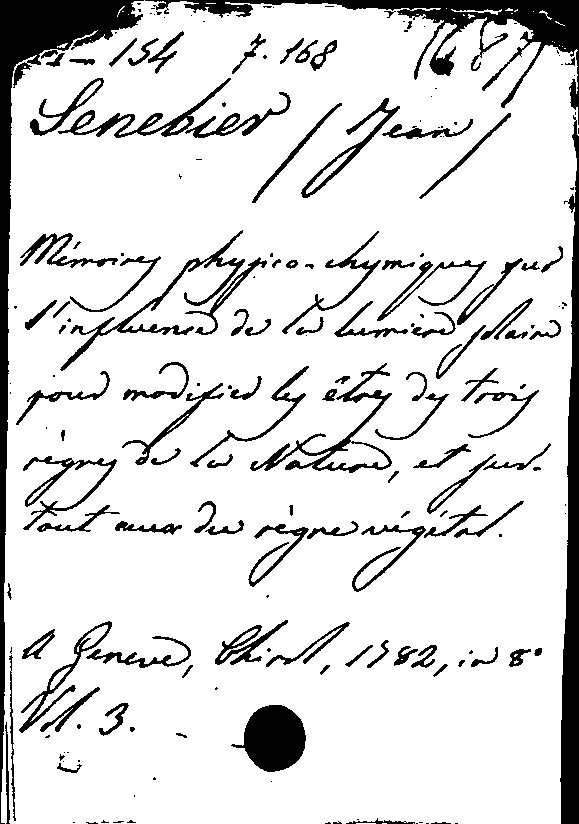 1-154 7.168 (687)
Senebier (Jean)
Mémoires physico-chymiques sur
l'influence de la lumière solaire
pour modifier les êtres des trois
règnes de la Nature, et sur-
tout ceux du règne végétal.
A Geneve, Chirol, 1782, in 8°
Vol. 3.